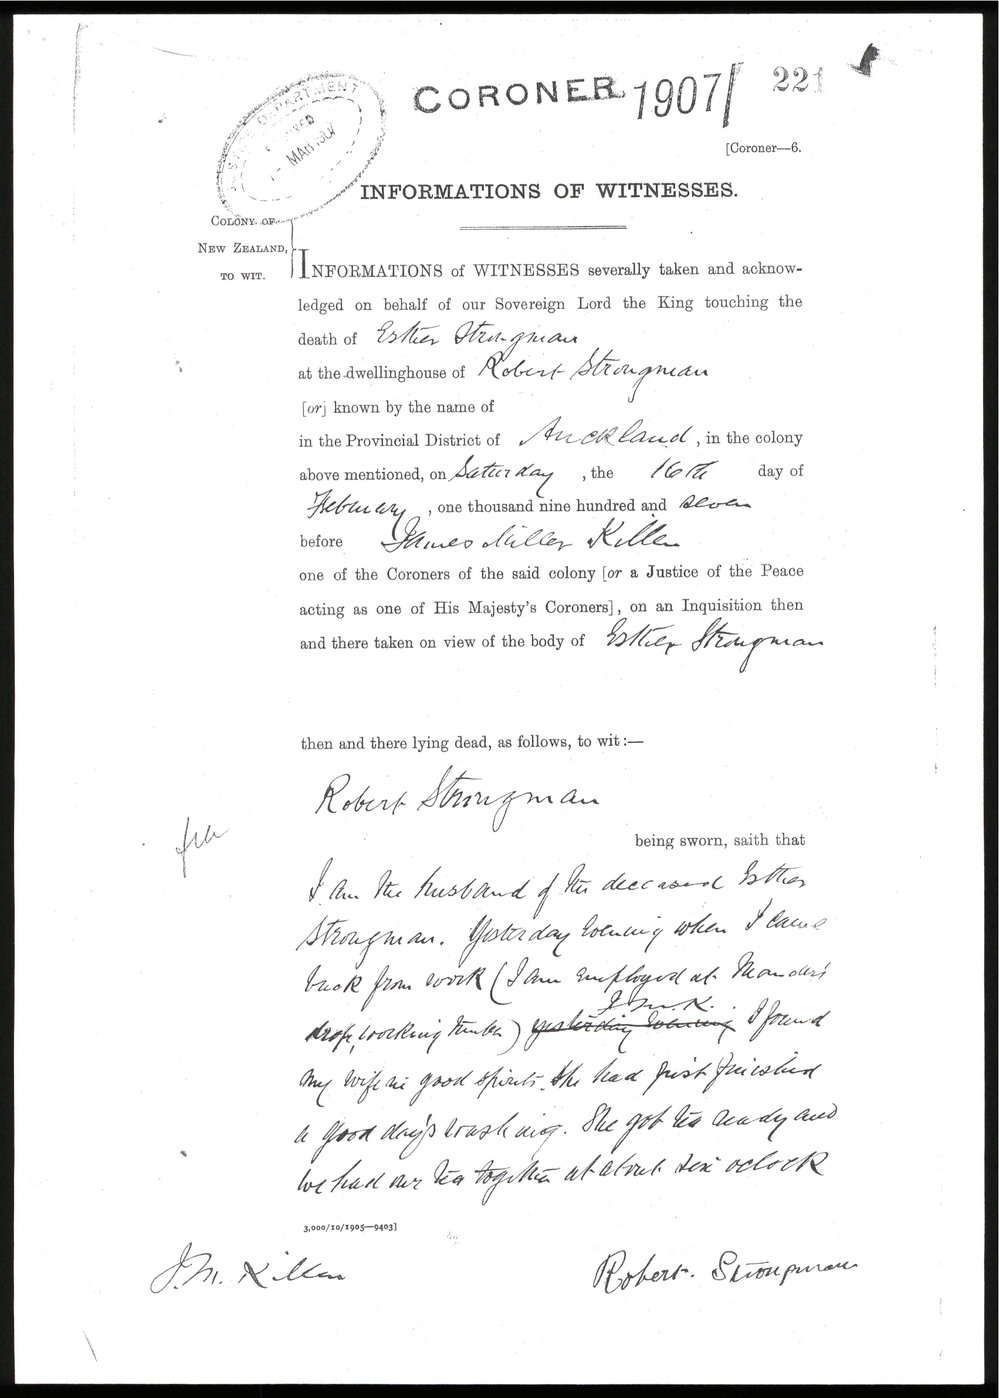 CORONER 1907/ 221
DEPARTMENT
MAR 1907
[Coroner—6.
INFORMATIONS OF WITNESSES.
COLONY OF
NEW ZEALAND,
TO WIT.
INFORMATIONS of WITNESSES severally taken and acknow-
ledged on behalf of our Sovereign Lord the King touching the
death of Esther Strongman
at the dwellinghouse of Robert Strongman
[or] known by the name of
in the Provincial District of Auckland, in the colony
above mentioned, on Saturday, the 16th day of
February, one thousand nine hundred and seven
before James Miller Killen
one of the Coroners of the said colony [or a Justice of the Peace
acting as one of His Majesty's Coroners], on an Inquisition then
and there taken on view of the body of Esther Strongman
then and there lying dead, as follows, to wit:—
Robert Strongman
being sworn, saith that
I am the husband of the deceased Esther
Strongman. Yesterday evening when I came
back from work (I am employed at Mander's
working timber) yesterday evening J.M.K. I found
my wife in good spirits. She had just finished
a good day's washing. She got tea ready and
we had our tea together at about six oclock
3,000/10/1905—9403]
J.M. Killen
Robert Strongman